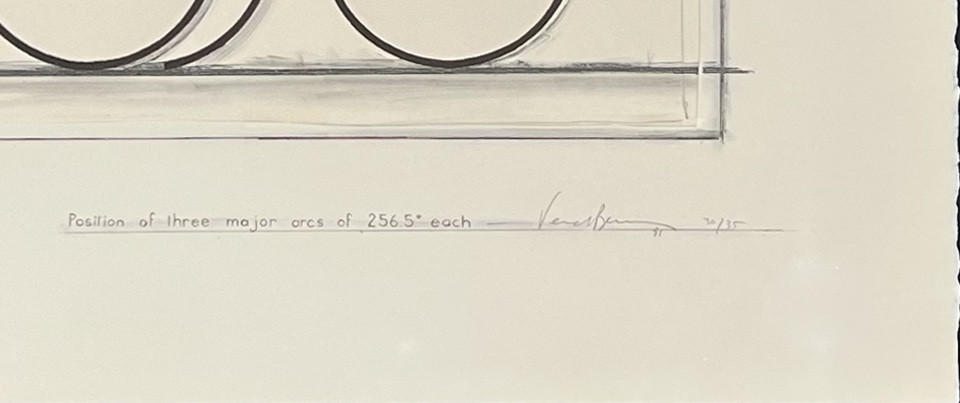 Position of three major arcs of 256.5° each — Venet Bernar 91 30/35